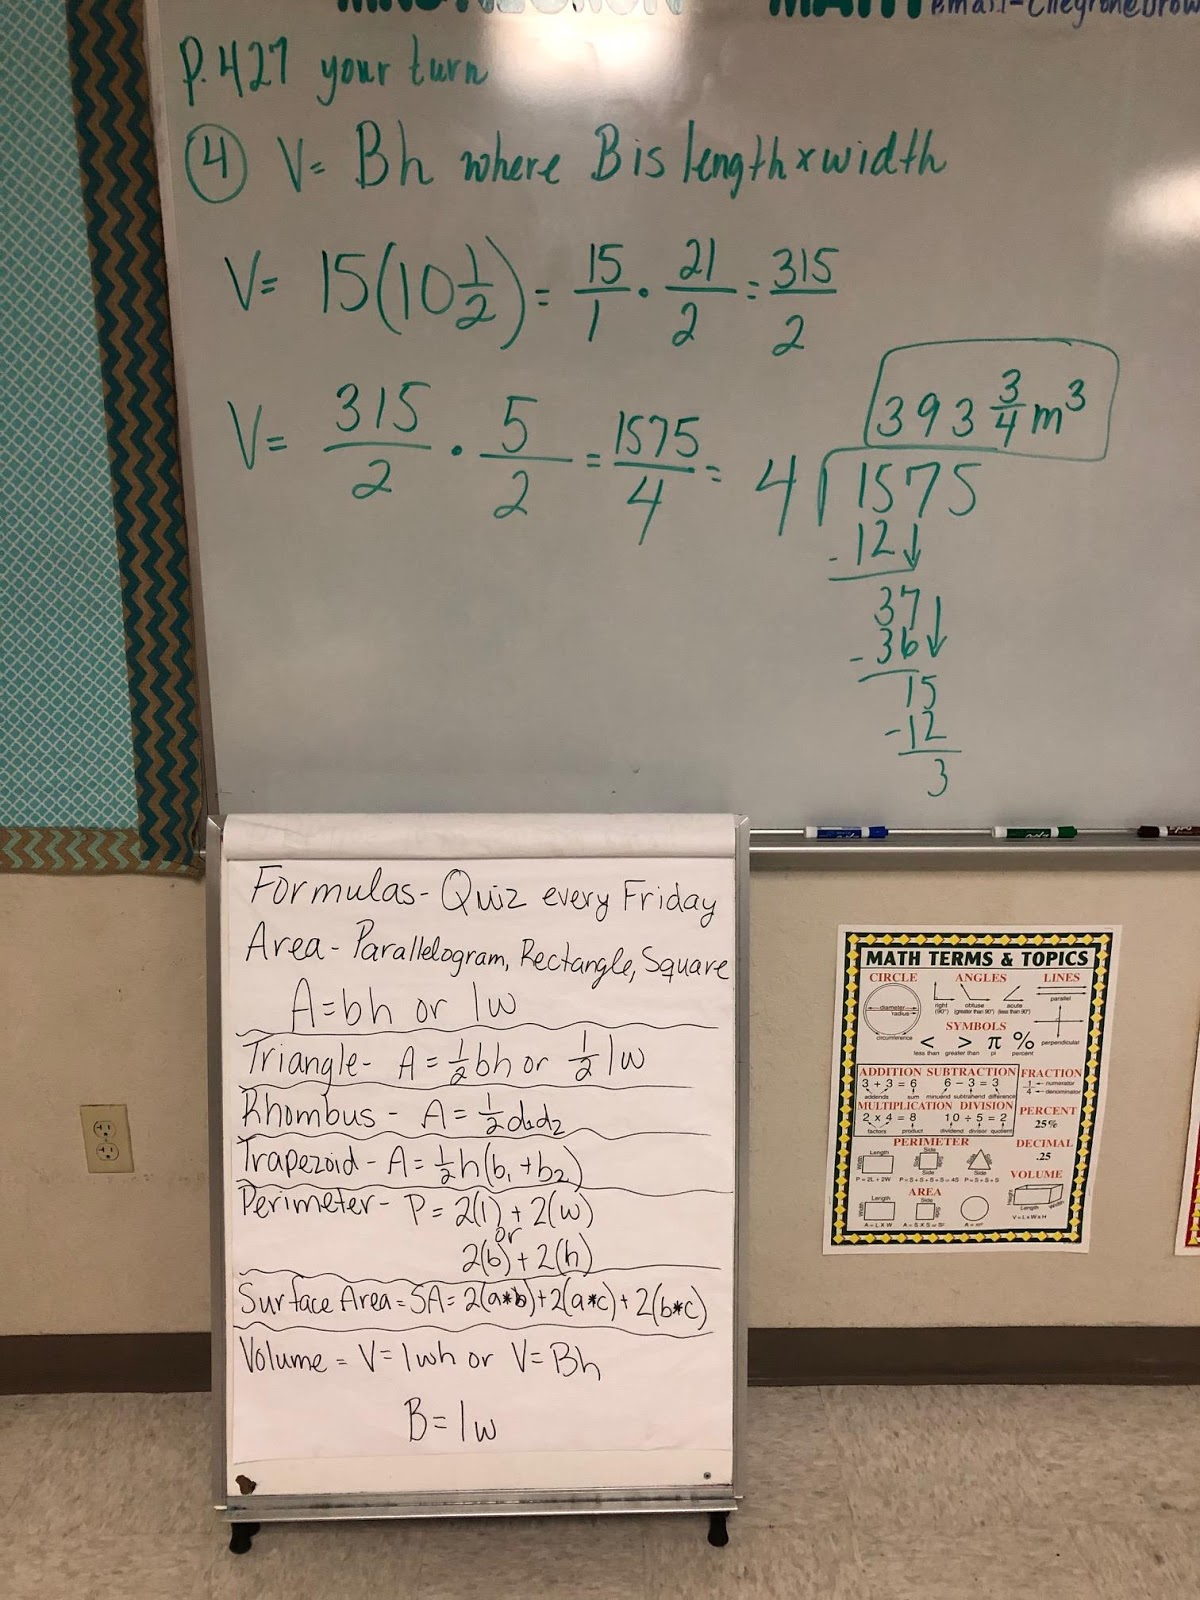 MATH email-
P.427 your turn
④ V= Bh where B is length x width
V= 15(10 1/2) = 15/1 · 21/2 = 315/2
V= 315/2 · 5/2 = 1575/4 = 4⟌1575
393 3/4 m³
-12↓
37↓
-36
15
-12
3
Formulas- Quiz every Friday
Area - Parallelogram, Rectangle, Square
A=bh or lw
Triangle- A = 1/2 bh or 1/2 lw
Rhombus - A = 1/2 d₁d₂
Trapezoid - A = 1/2 h(b₁ + b₂)
Perimeter- P = 2(l) + 2(w)
or
2(b) + 2(h)
Surface Area = SA= 2(a*b)+2(a*c)+2(b*c)
Volume = V=lwh or V=Bh
B=lw
MATH TERMS & TOPICS
CIRCLE ANGLES LINES
diameter
radius
circumference
right (90°) obtuse (greater than 90°) acute (less than 90°)
parallel
perpendicular
SYMBOLS
< > π %
less than greater than pi percent
ADDITION SUBTRACTION FRACTION
3 + 3 = 6 6 - 3 = 3 1/4 numerator denominator
addends sum minuend subtrahend difference
MULTIPLICATION DIVISION PERCENT
2 x 4 = 8 10 ÷ 5 = 2 25%
factors product dividend divisor quotient
PERIMETER DECIMAL
.25
Length Width Side Side Side
P = 2L + 2W P = S + S + S + S = 4S P = S + S + S
VOLUME
AREA
Length Width Side
Length Width
A = L X W V = L x W x H